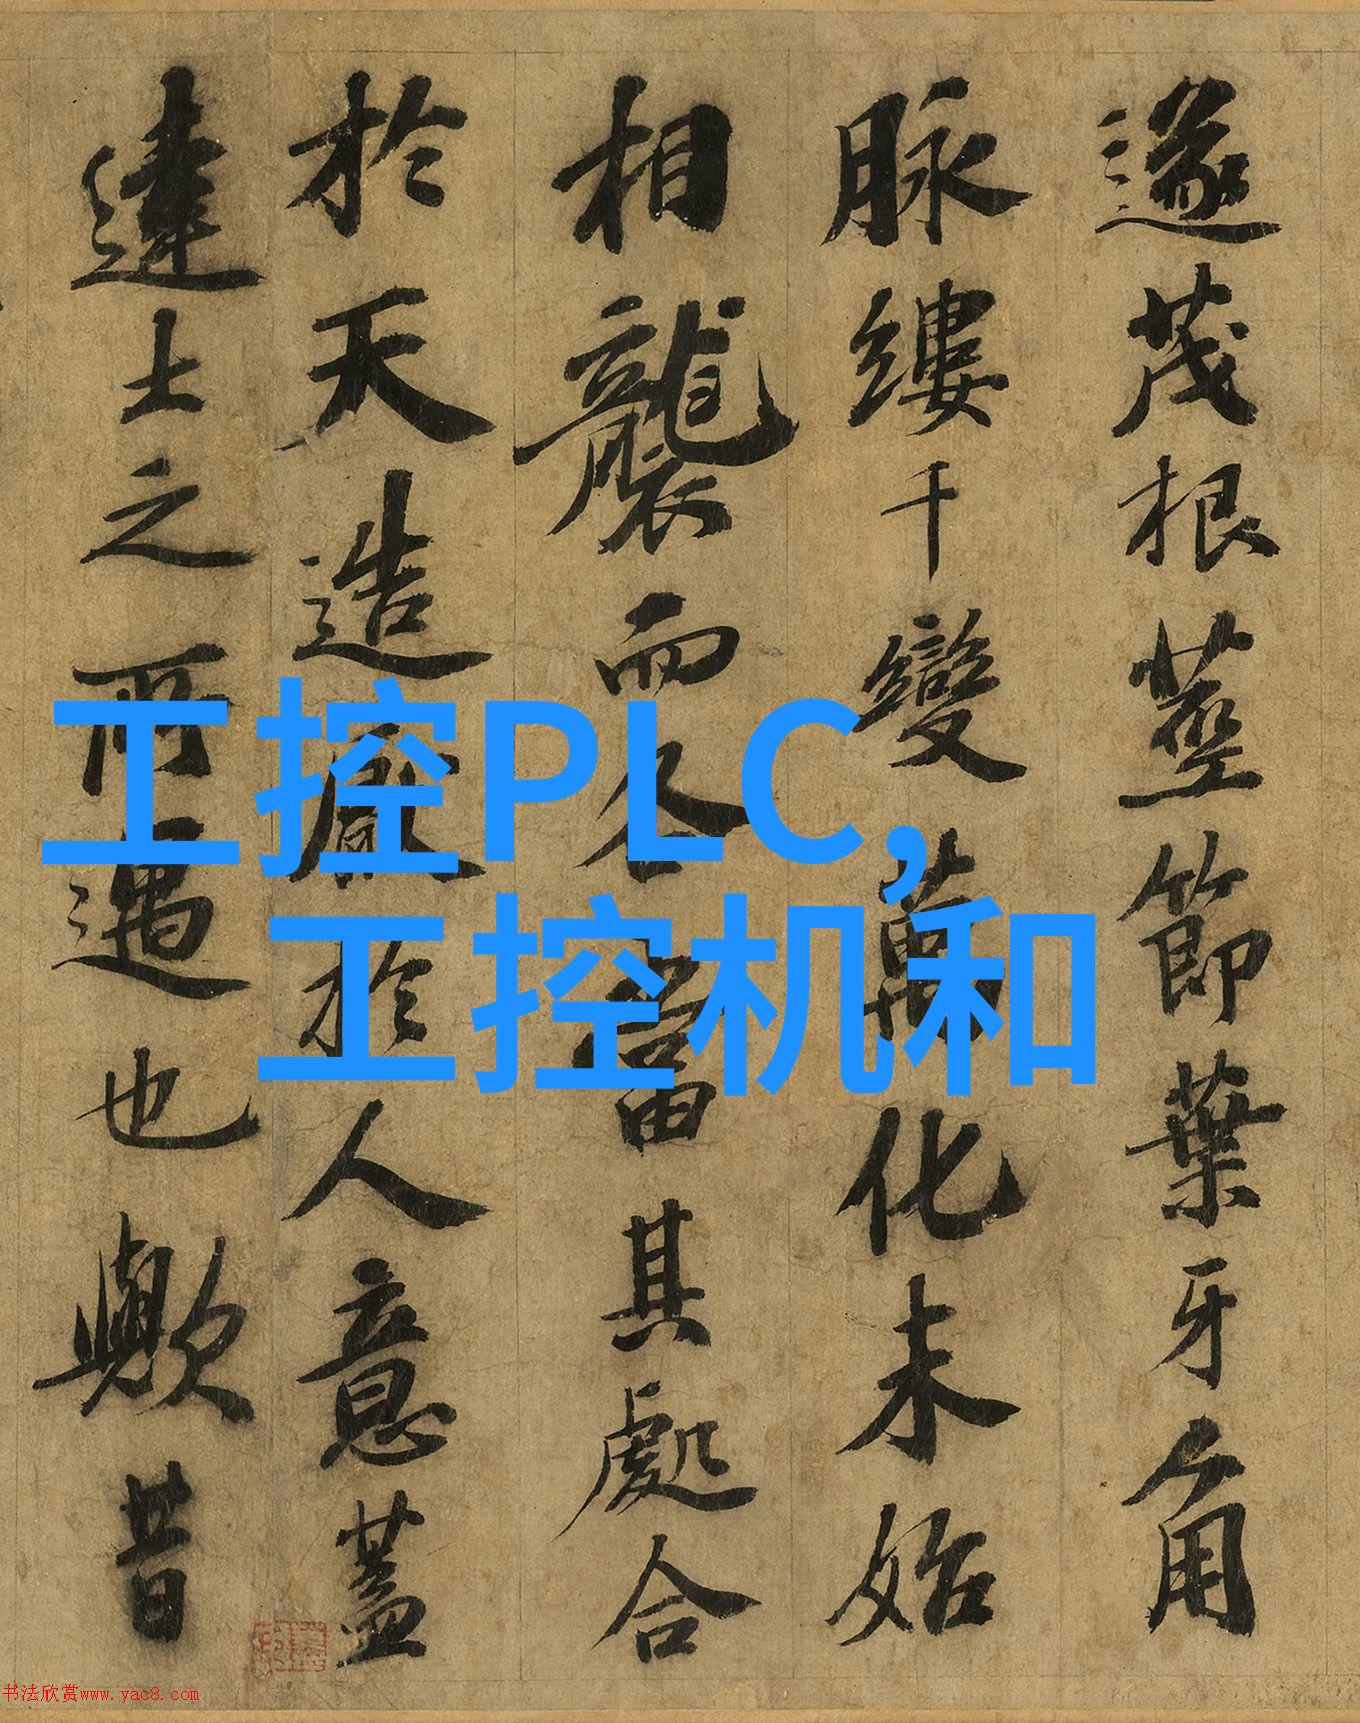 遂茂根莖節葉牙角
脉縷千變萬化未始
相襲而各當其處合
於天造厭於人意蓋
達士之所遇也歟昔
工控PLC,
工控机和
书法欣赏www.yac8.com